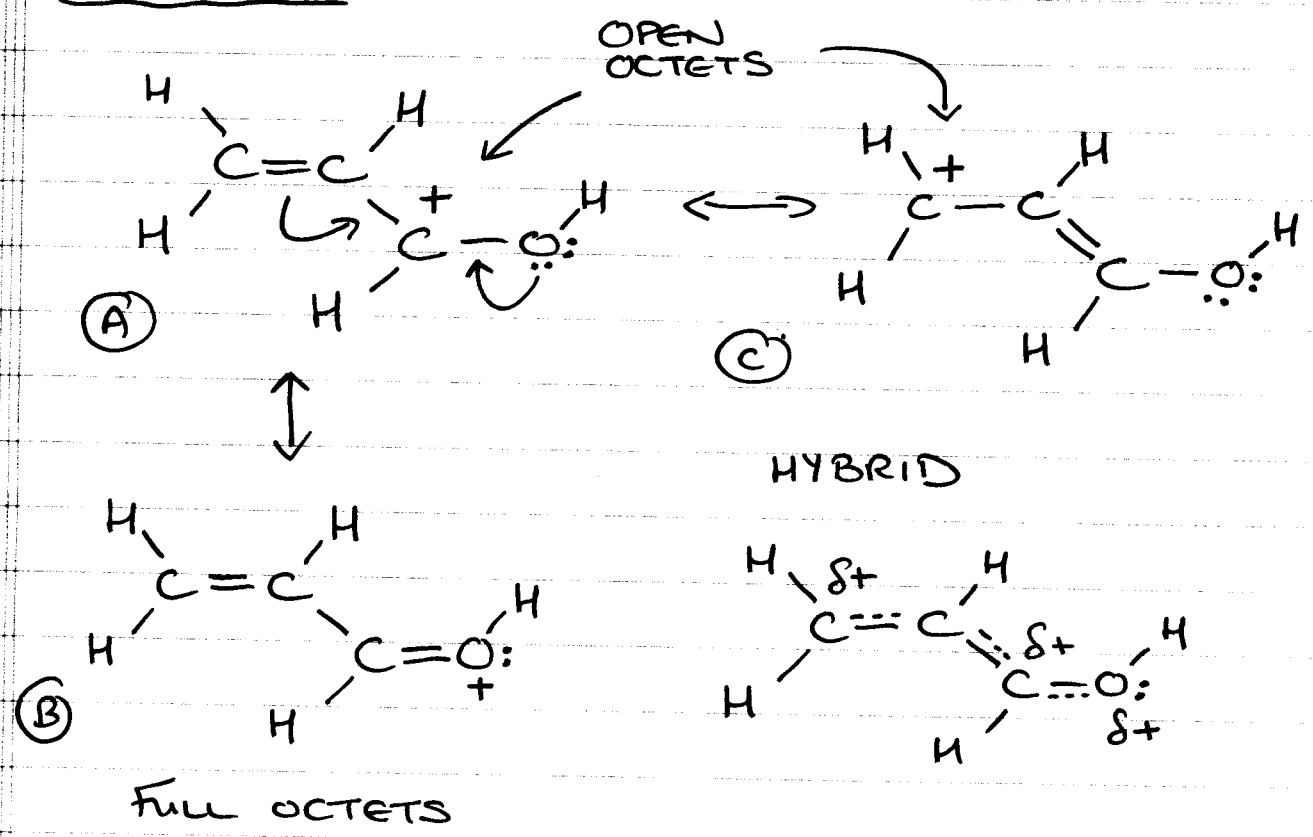 OPEN
OCTETS
H
H
C=C
H
+
C-O:
H
H
A
H
+
H
C-C
H
C-O:
H
H
C
HYBRID
H
H
C=C
H
C=O:
+
H
H
B
FULL OCTETS
H
δ+
H
C=C
H
δ+
C=O:
δ+
H
H